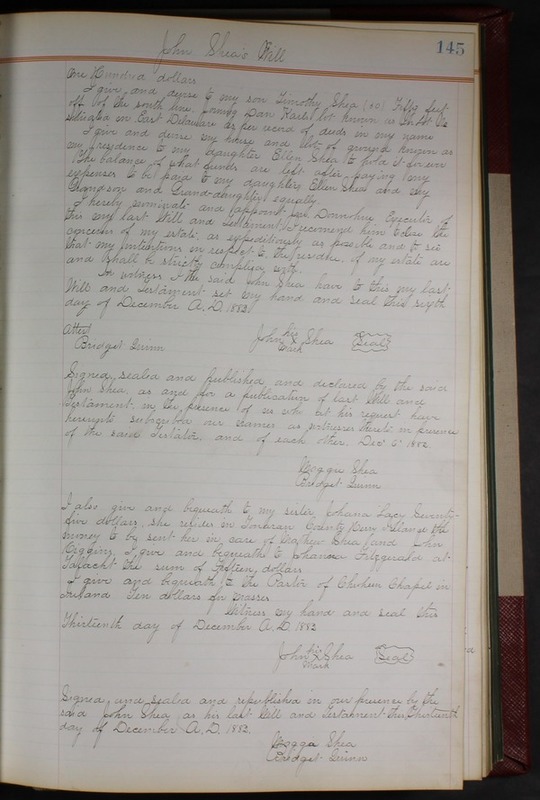 John Shea's Will
145
One Hundred dollars
I give and devise to my son Timothy Shea (50) Fifty feet
off of the south line, Dan lot known as
situated in East Delaware as per record of deeds in my name
I give and devise my house and lot of ground known as
my residence to my daughter Ellen Shea to hold it forever
The balance of what funds are left after paying my
expenses to be paid to my daughter, Ellen Shea and my
Grandson and Grand-daughter equally.
I hereby nominate and appoint Donohue Executor of
this my last Will and Testament, I recommend him to close the
concerns of my estate, as expeditiously as possible and to see
that my intentions in respect to the residue, of my estate are
and shall be strictly complied with.
In witness I the said John Shea have to this my last
Will and Testament set my hand and seal this sixth
day of December A.D. 1882.
Attest
Bridget Quinn
John his X mark Shea Seal
Signed, sealed and published and declared by the said
John Shea, as and for a publication of last Will and
Testament, in the presence of us who at his request have
hereunto subscribed our names as witnesses thereto in presence
of the said Testator, and of each other, Dec 6" 1882.
Maggie Shea
Bridget Quinn
I also give and bequeath to my sister, Johana Lacy Seventy-
five dollars, she resides in County Kerry Ireland the
money to be sent her in care of Mathew Shea and John
I give and bequeath to Fitzgerald at
the sum of Fifteen dollars
I give and bequeath to the Pastor of Chapel in
Ireland Ten dollars for masses
Witness my hand and seal this
Thirteenth day of December A.D. 1882
John his X mark Shea Seal
Signed, and sealed and republished in our presence by the
said John Shea, as his last Will and Testament this Thirteenth
day of December A.D. 1882.
Maggie Shea
Bridget Quinn